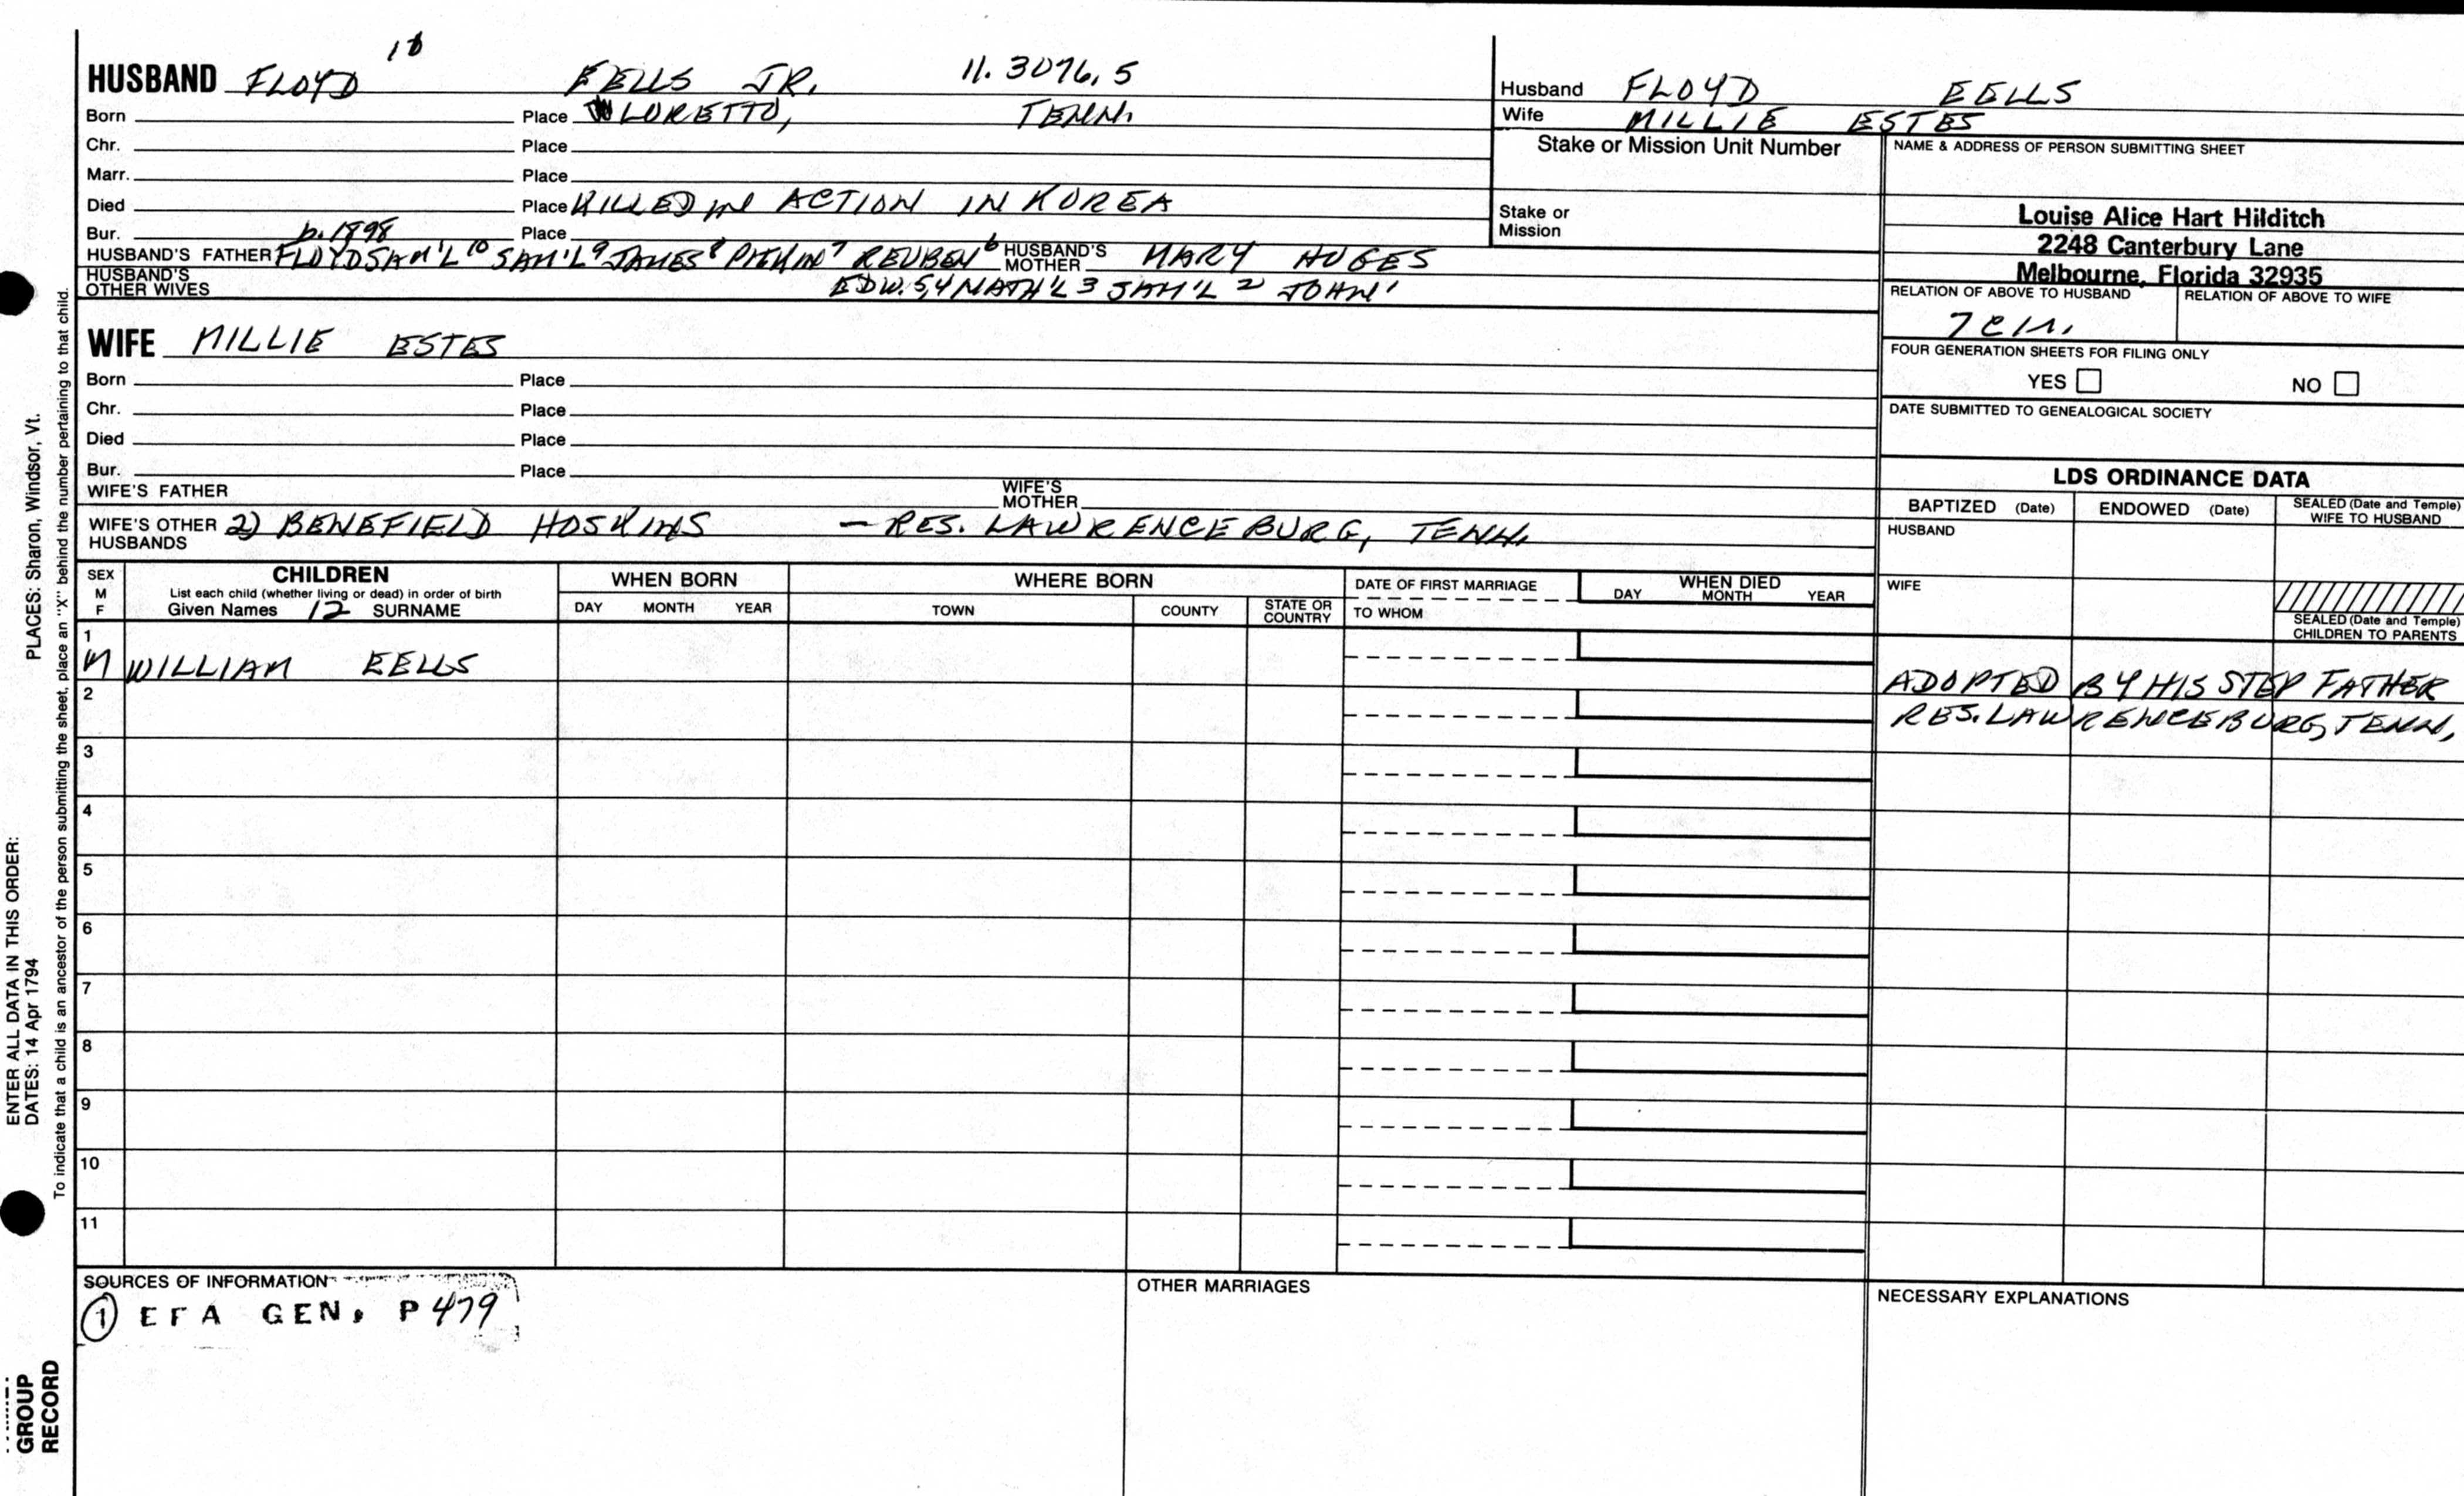 HUSBAND FLOYD EELLS JR. 11.3076.5
Born Place LORETTO, TENN.
Chr. Place
Marr. Place
Died Place KILLED IN ACTION IN KOREA
Bur. b. 1898 Place
HUSBAND'S FATHER FLOYD SAM'L 10 SAM'L 9 JAMES 8 PITKIN 7 REUBEN 6 HUSBAND'S MOTHER MARY HUGES
HUSBAND'S OTHER WIVES EDW. 5,4 NATH'L 3 SAM'L 2 JOHN 1
WIFE MILLIE ESTES
Born Place
Chr. Place
Died Place
Bur. Place
WIFE'S FATHER WIFE'S MOTHER
WIFE'S OTHER HUSBANDS 2) BENEFIELD HOSKINS – RES. LAWRENCEBURG, TENN.
Husband FLOYD EELLS
Wife MILLIE ESTES
Stake or Mission Unit Number
Stake or Mission
NAME & ADDRESS OF PERSON SUBMITTING SHEET
Louise Alice Hart Hilditch
2248 Canterbury Lane
Melbourne, Florida 32935
RELATION OF ABOVE TO HUSBAND RELATION OF ABOVE TO WIFE
FOUR GENERATION SHEETS FOR FILING ONLY
YES NO
DATE SUBMITTED TO GENEALOGICAL SOCIETY
LDS ORDINANCE DATA
BAPTIZED (Date) ENDOWED (Date) SEALED (Date and Temple) WIFE TO HUSBAND
HUSBAND
WIFE
SEALED (Date and Temple)
CHILDREN TO PARENTS
SEX M F
CHILDREN
List each child (whether living or dead) in order of birth
Given Names 12 SURNAME
WHEN BORN
DAY MONTH YEAR
WHERE BORN
TOWN COUNTY STATE OR COUNTRY
DATE OF FIRST MARRIAGE
TO WHOM
WHEN DIED
DAY MONTH YEAR
1
M WILLIAM EELLS ADOPTED BY HIS STEP FATHER
2 RES. LAWRENCEBURG, TENN,
3
4
5
6
7
8
9
10
11
SOURCES OF INFORMATION
1 EFA GEN, P 479
OTHER MARRIAGES
NECESSARY EXPLANATIONS
PLACES: Sharon, Windsor, Vt.
ENTER ALL DATA IN THIS ORDER:
DATES: 14 Apr 1794
To indicate that a child is an ancestor of the person submitting the sheet, place an "X" behind the number pertaining to that child.
GROUP
RECORD